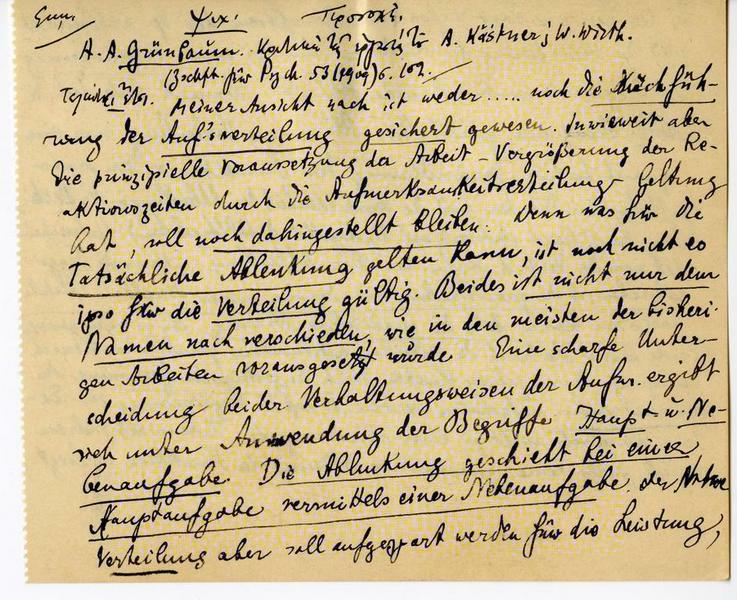 Ψυχ. Προσοχή.
A. A. Grünbaum. Κριτική τῆς ἐργασίας τῶν A. Kästner & W. Wirth.
(Zschft. für Psych. 53 (1909) S. 102.
Meiner Ansicht nach ist weder ..... noch die Durchfüh-
rung der Aufm.verteilung gesichert gewesen. Inwieweit aber
die prinzipielle Voraussetzung der Arbeit – Vergrößerung der Re-
aktionszeiten durch die Aufmerksamkeitsverteilung – Geltung
hat, soll noch dahingestellt bleiben. Denn was für die
Tatsächliche Ablenkung gelten kann, ist noch nicht eo
ipso für die Verteilung gültig. Beides ist nicht nur dem
Namen nach verschieden, wie in den meisten der bisheri-
gen Arbeiten vorausgesetzt würde. Eine scharfe Unter-
scheidung beider Verhaltungsweisen der Aufm. ergibt
sich unter Anwendung der Begriffe Haupt u. Ne-
benaufgabe. Die Ablenkung geschieht bei einer
Hauptaufgabe vermittels einer Nebenaufgabe. der Name
Verteilung aber soll aufgespart werden für die Leistung,